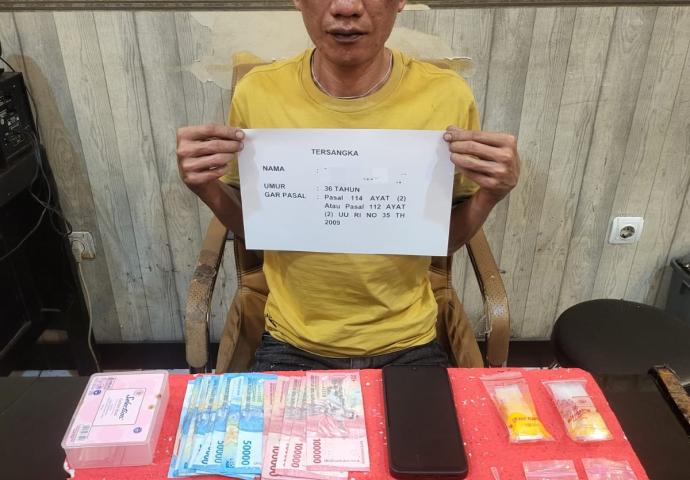 TERSANGKA
NAMA :
UMUR : 36 TAHUN
GAR PASAL : Pasal 114 AYAT (2)
Atau Pasal 112 AYAT
(2) UU RI NO 35 TH
2009
50000
50000
100000
100000
100000